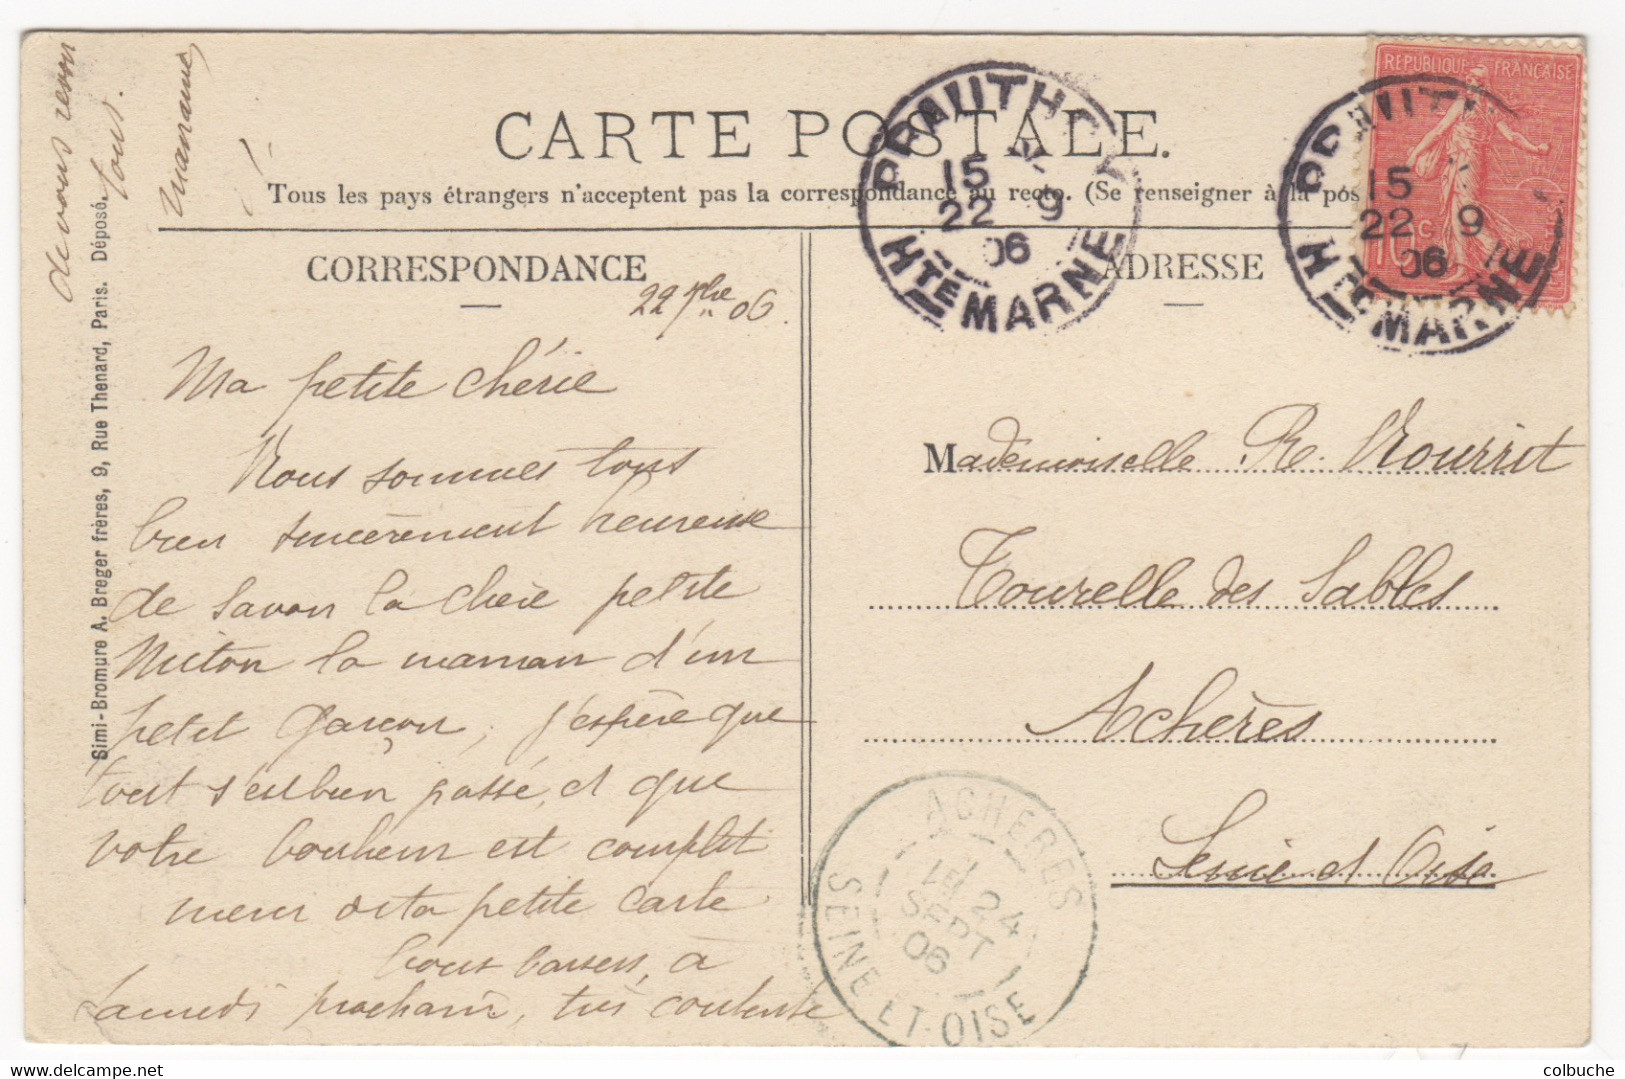 CARTE POSTALE.
Tous les pays étrangers n'acceptent pas la correspondance au recto. (Se renseigner à la pos
CORRESPONDANCE
22 7bre 06.
Ma petite chérie
Nous sommes tous
bien sincèrement heureuse
de savoir la chère petite
la maman d'un
petit garçon, j'espère que
tout s'est bien passé, et que
votre bonheur est complet
merci de ta petite carte
bons baisers, à
Samedi prochain, très contente
de vous revoir
tous.
Simi-Bromure A. Breger frères, 9, Rue Thenard, Paris. Déposé.
ADRESSE
Mademoiselle R. Nourrit
Tourelle des Sables
Achères
Seine et Oise
PRAUTHOY
15
22 9
06
HTE MARNE
REPUBLIQUE FRANÇAISE
10 c
15
22 9
06
HTE MARNE
ACHERES
15 24
SEPT
06
SEINE-ET-OISE
colbuche